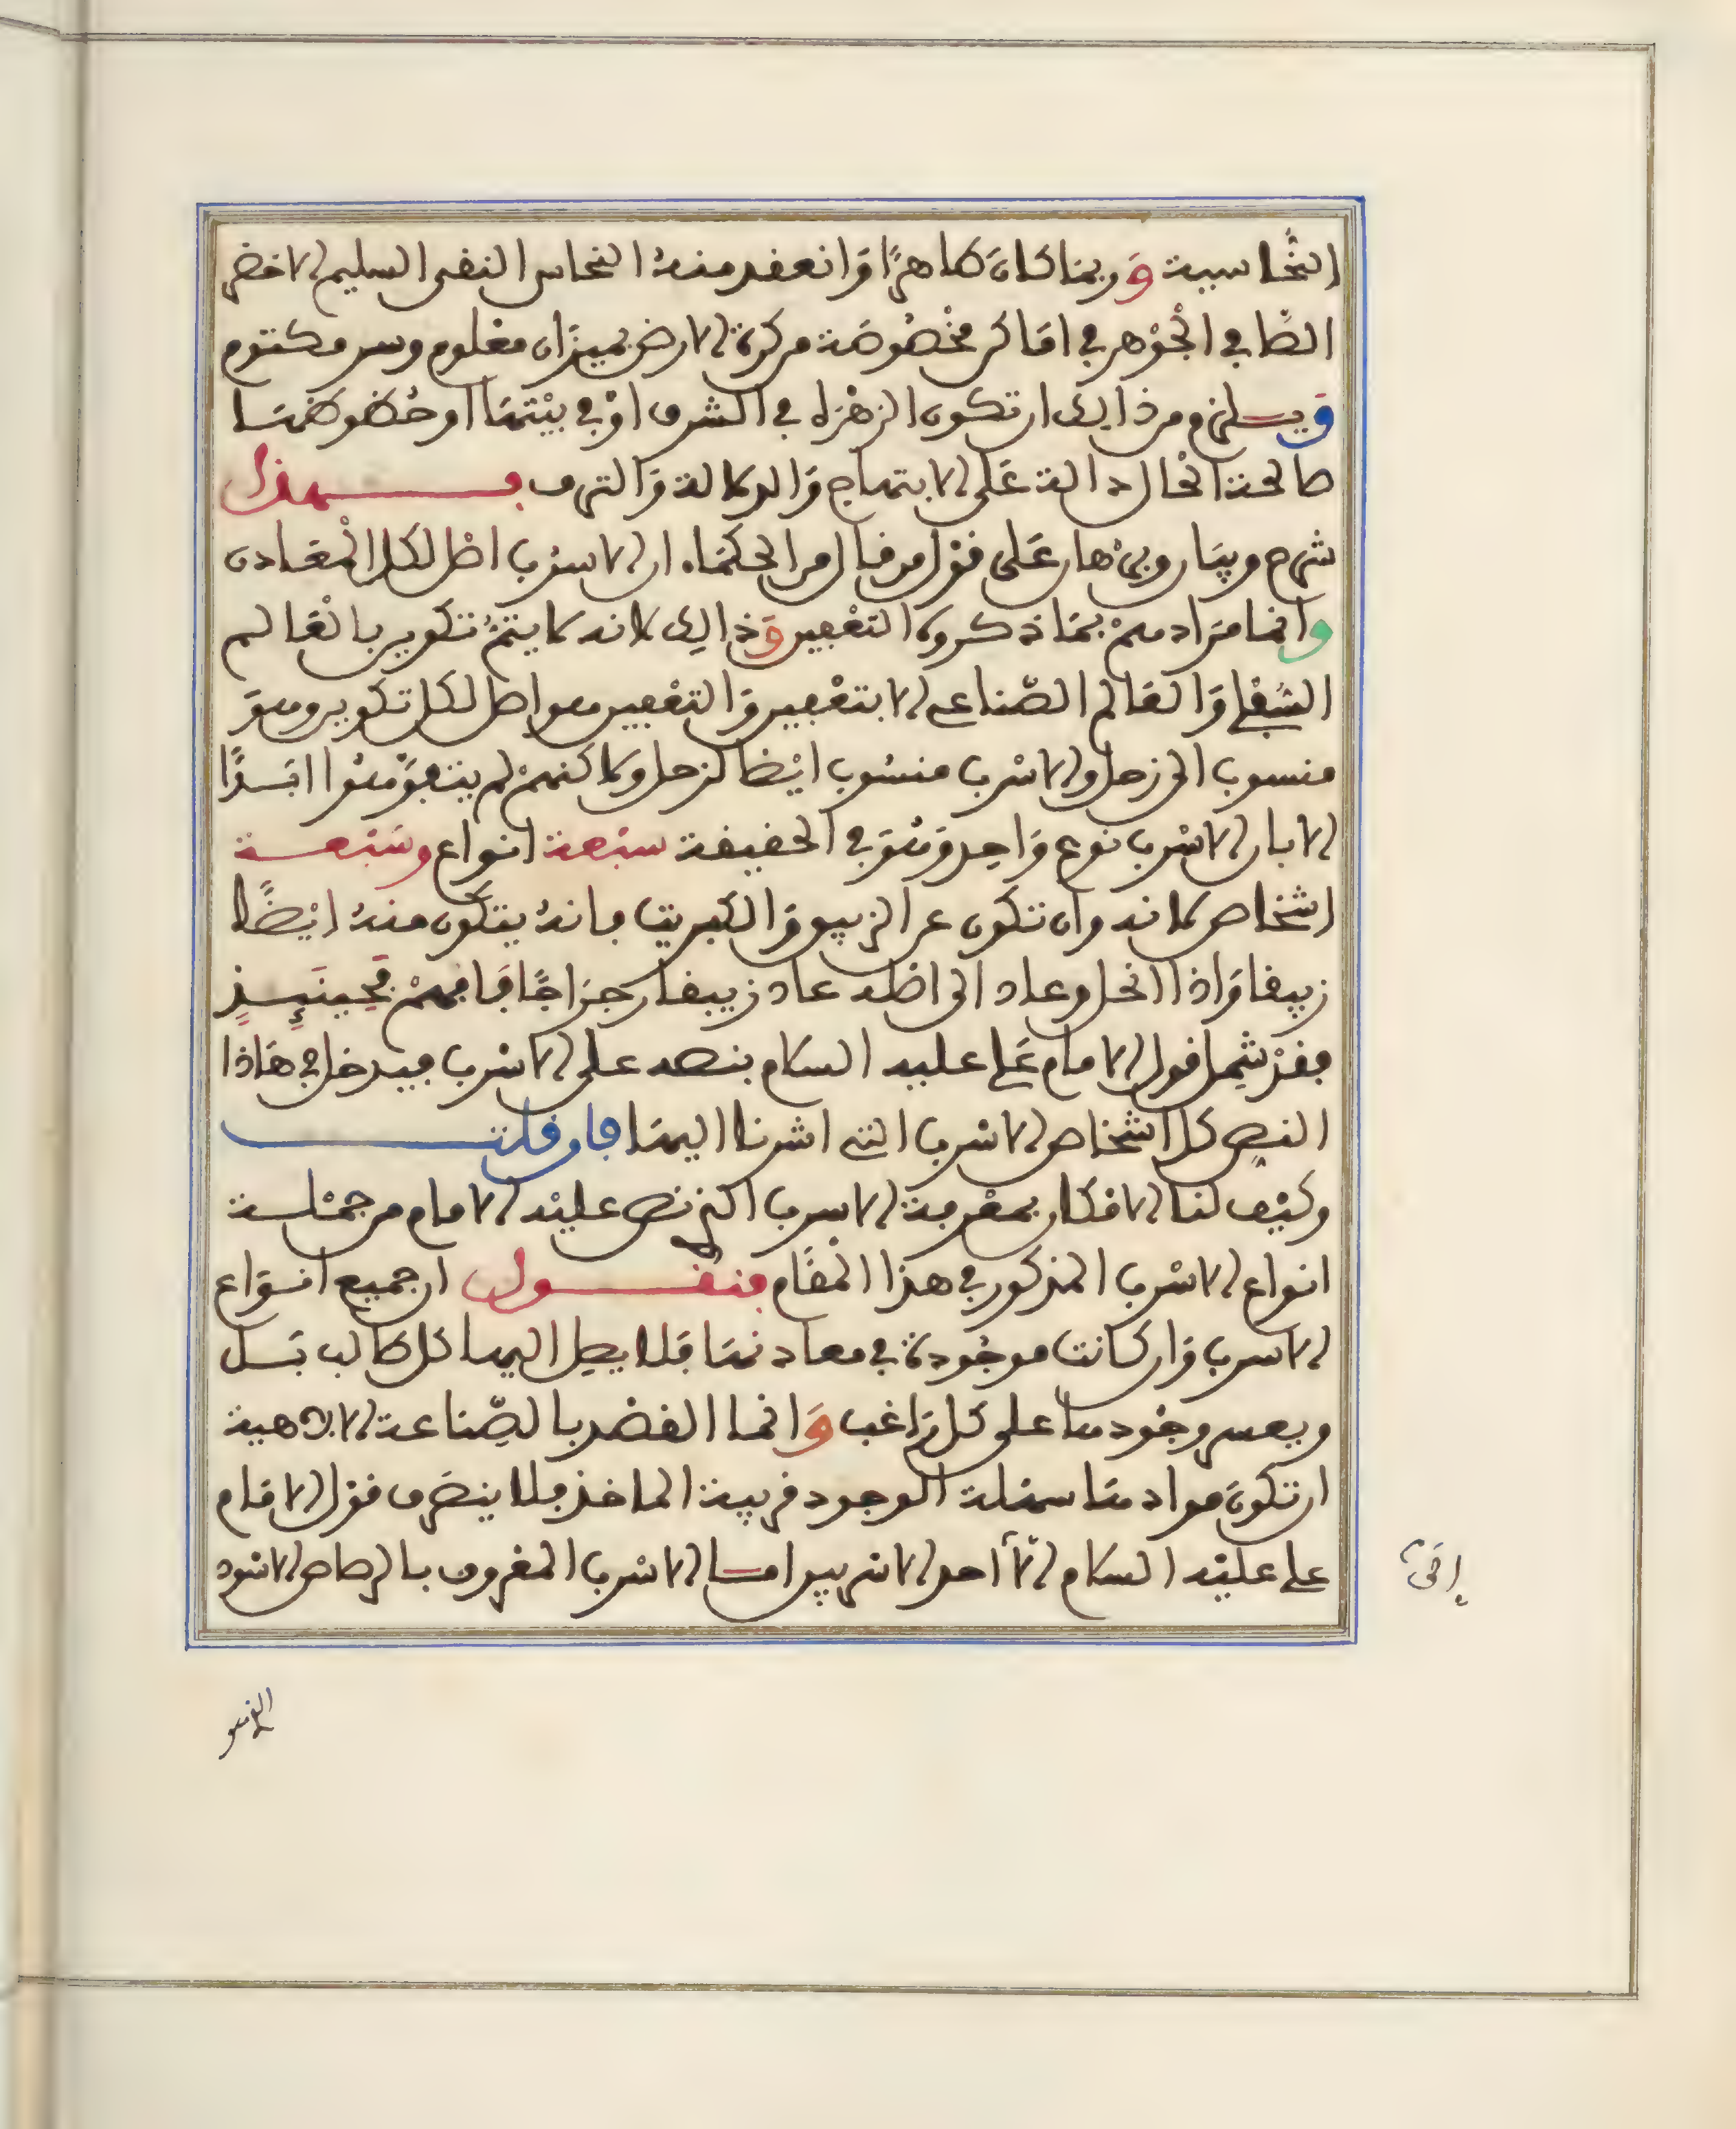 النحاسية وربما كان طاهرًا وانعقد منه النحاس النقى السليم الاخضر
الصافي الجوهر في اماكن مخصوصة من كرة الارض بميزان معلوم وسر مكتوم
ويلزم من ذالك ان تكون الزهرة في الشرف او في بيتها او حظوظها
صالحة الحال دالة على الابتهاج والدلالة والترف فهذا
شرح وبيان وبرهان على قول من قال من الحكماء ان الاسرب اصل لكل المعادن
وانما مرادهم بما ذكروه التعفين وذالك لانه لا يتم تكوين بالعالم
السفلي والعالم الصناعي الا بتعفين والتعفين هو اصل لكل تكوين وهو
منسوب الى زحل والاسرب منسوب ايضا لزحل ولاكنهم لم يتفوهوا ابدًا
الا بان الاسرب نوع واحد وهو في الحقيقة سبعة انواع وسبعة
اشخاص لانه وان تكون عن الزيبق والكبريت فانه يتكون منه ايضًا
زيبقا واذا انحل وعاد الى اصله عاد زيبقا رجراجًا فافهم فحينئذ
فقد شمل قول الامام علي عليه السلام بنصه على الاسرب فيدخل في هاذا
النص كل اشخاص الاسرب التي اشرنا اليها فان قلت
وكيف لنا الامكان بمعرفة الاسرب الذي نص عليه الامام من جملة
انواع الاسرب المذكور في هذا المقام فنقول ان جميع انواع
الاسرب وان كانت موجودة في معادنها فلا يصل اليها كل طالب بل
ويعسر وجودها على كل راغب وانما القصد بالصناعة الالاهية
ان تكون موادها سهلة الوجود قريبة الماخذ فلا ينصرف قول الامام
علي عليه السلام الا لاحد الاسربين اما الاسرب المعروف بالرصاص الاسود
الذي هو